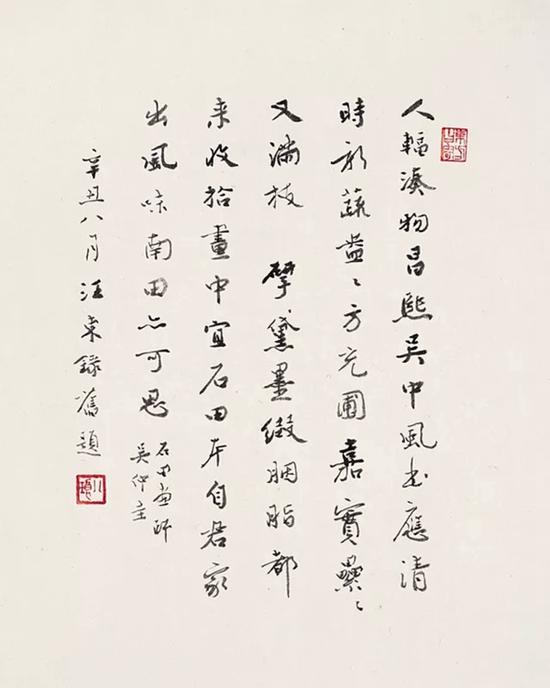 人輻湊物昌熙吴中風土應清
時新蔬盎〻方充圃嘉實纍〻
又滿枝 擘黛墨綴胭脂都
来收拾畫中宜石田本自君家
出風味南田亦可思
石田畫師
吴仲圭
辛丑八月汪東録舊題